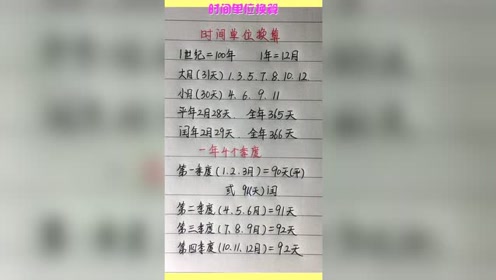 时间单位换算
时间单位换算
1世纪=100年 1年=12月
大月(31天) 1.3.5.7.8.10.12
小月(30天) 4.6.9.11
平年2月28天 全年365天
闰年2月29天 全年366天
一年4个季度
第一季度(1.2.3月)=90天(平)
或 91(天)闰
第二季度(4.5.6月)=91天
第三季度(7.8.9月)=92天
第四季度(10.11.12月)=92天